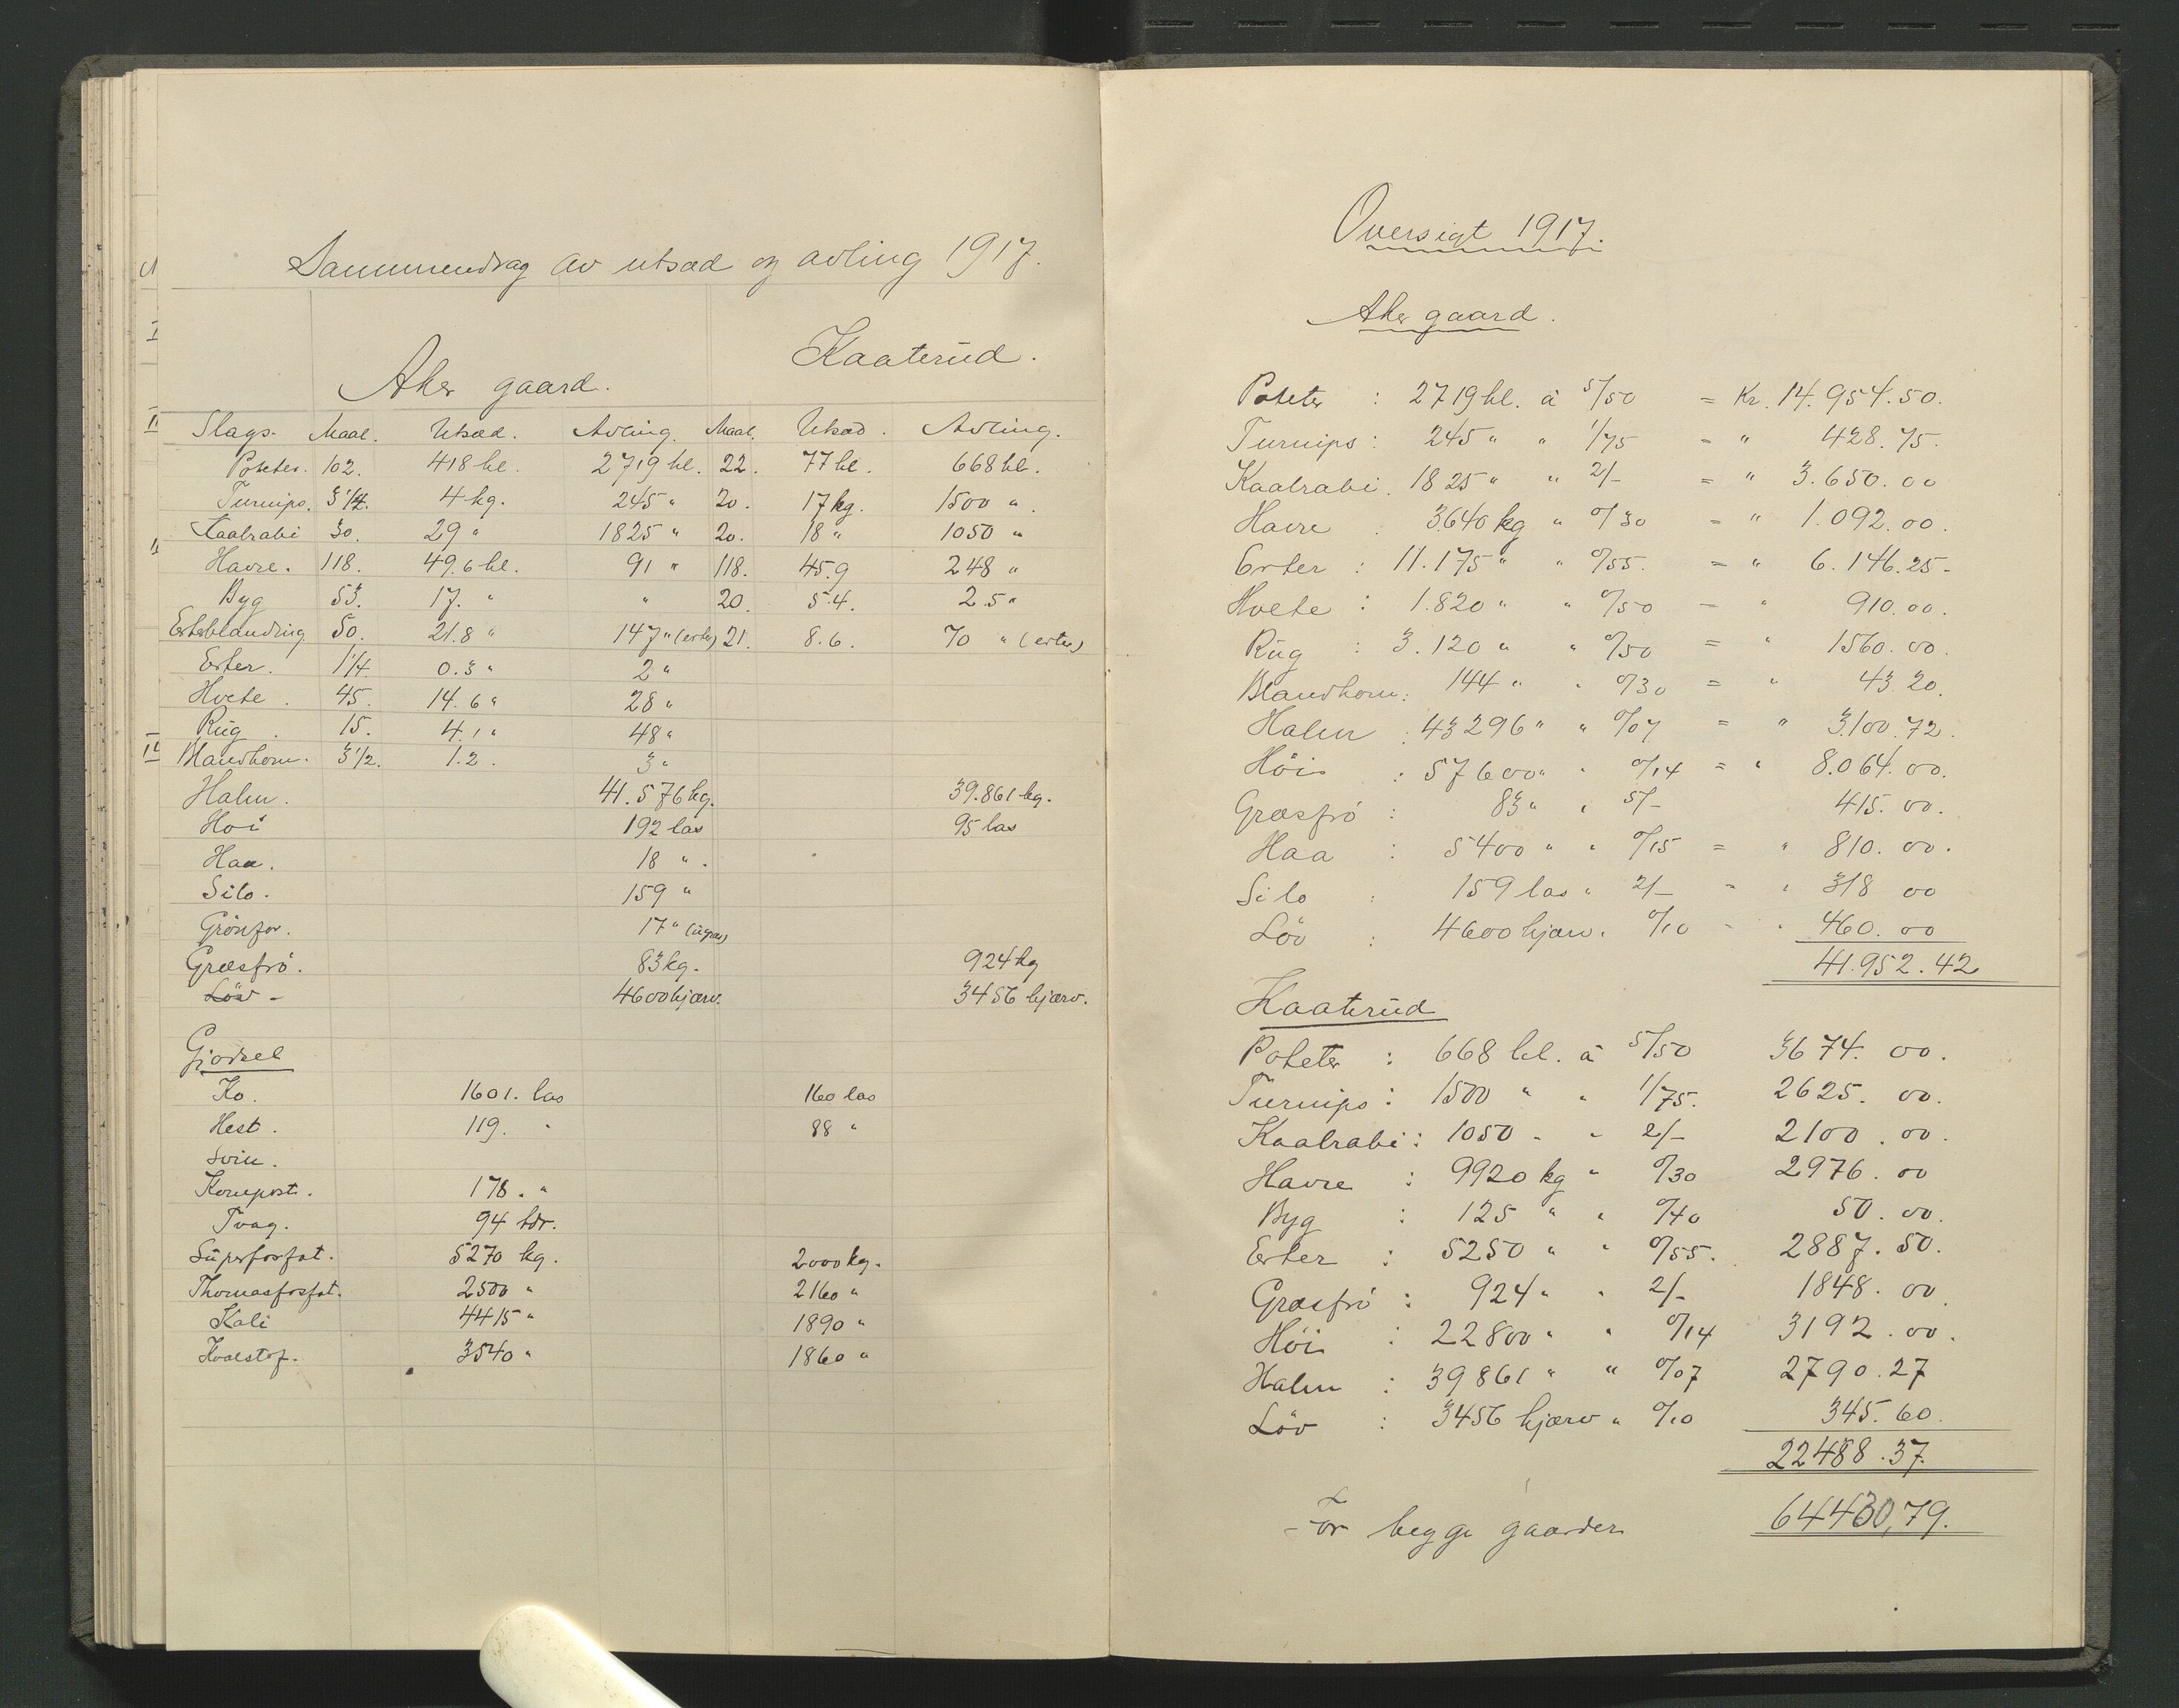 Sammendrag av utsæd og avling 1917.
Aker gaard. Kaaterud.
Slags. Maal. Utsæd. Avling. Maal. Utsæd. Avling.
Poteter. 102. 418 hl. 2719 hl. 22. 77 hl. 668 hl.
Turnips. 3 1/4. 4 kg. 245 " 20. 17 kg. 1500 "
Kaalrabi 30. 29 " 1825 " 20. 18 " 1050 "
Havre. 118. 49.6 hl. 91 " 118. 45.9 248 "
Byg 53. 17. " " 20. 5.4. 2.5 "
Erteblanding 50. 21.8 " 147 " (erter) 21. 8.6. 70 " (erter)
Erter. 1 1/4. 0.3 " 2 "
Hvete. 45. 14.6 " 28 "
Rug. 15. 4.1 " 48 "
Blandkorn. 3 1/2. 1.2. 3 "
Halm. 41.576 kg. 39.861 kg.
Höi 192 las 95 las
Haa. 18 ".
Silo. 159 "
Grönfor. 17 "
Græsfrö. 83 kg. 924 kg
Löv - 4600 hjærv. 3456 hjærv.
Gjödsel
Ko. 1601. las 160 las
Hest. 119. " 88 "
Svin.
Kompost. 178. "
Tvag. 94 tdr.
Superfosfat. 5270 kg. 2000 kg.
Thomasfosfat. 2500 " 2160 "
Kali 4415 " 1890 "
Kvælstof. 3540 " 1860 "
Oversigt 1917.
Aker gaard.
Poteter : 2719 hl. à 5/50 = Kr. 14.954.50.
Turnips : 245 " " 1/75 = " 428.75.
Kaalrabi. 1825 " " 2/- = " 3.650.00
Havre : 3640 kg " 0/30 = " 1.092.00.
Erter : 11.175 " " 0/55. = " 6.146.25-
Hvete : 1.820 " " 0/50 = " 910.00.
Rug : 3.120 " " 0/50 = " 1560.00.
Blandkorn : 144 " " 0/30 = " 43.20.
Halm : 43296 " " 0/07 = " 3.100.72.
Höi : 57600 " " 0/14 = " 8.064.00.
Græsfrö : 83 " " 5/- 415.00.
Haa : 5400 " " 0/15 = " 810.00.
Silo : 159 las " 2/- = " 318 00
Löv : 4600 hjærv. " 0/10 - " 460.00
41.952.42
Kaaterud
Poteter : 668 hl. à 5/50 3674.00.
Turnips : 1500 " " 1/75. 2625.00.
Kaalrabi : 1050 " " 2/- 2100.00.
Havre : 9920 kg " 0/30 2976.00
Byg : 125 " " 0/40 50.00.
Erter : 5250 " " 0/55. 2887.50.
Græsfrö : 924 " " 2/- 1848.00
Höi : 22800 " " 0/14 3192.00.
Halm : 39861 " " 0/07 2790.27
Löv : 3456 hjærv " 0/10 345.60.
22488.37.
For begge gaarder 64430,79.